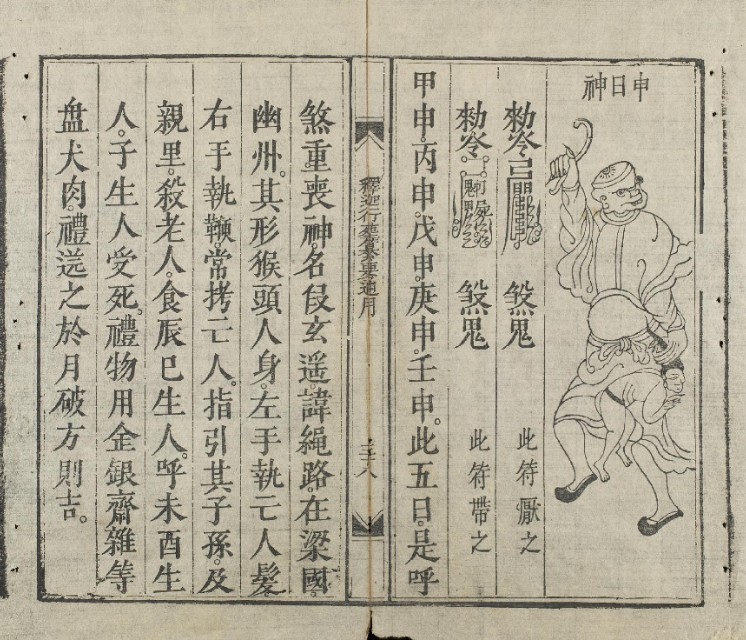 申日神
勑令 煞鬼 此符厭之
勑令 煞鬼 此符帶之
甲申。丙申。戊申。庚申。壬申。此五日。是呼
釋迦行 通用
三十八
煞重喪神。名叚玄遥。諱繩路。在梁國。
幽州。其形猴頭人身。左手執亡人髮。
右手執鞭。常拷亡人。指引其子孫。及
親里。殺老人。食辰巳生人。呼未酉生
人。子生人受死。禮物用金銀齋雜等
盘犬肉。禮送之於月破方則吉。